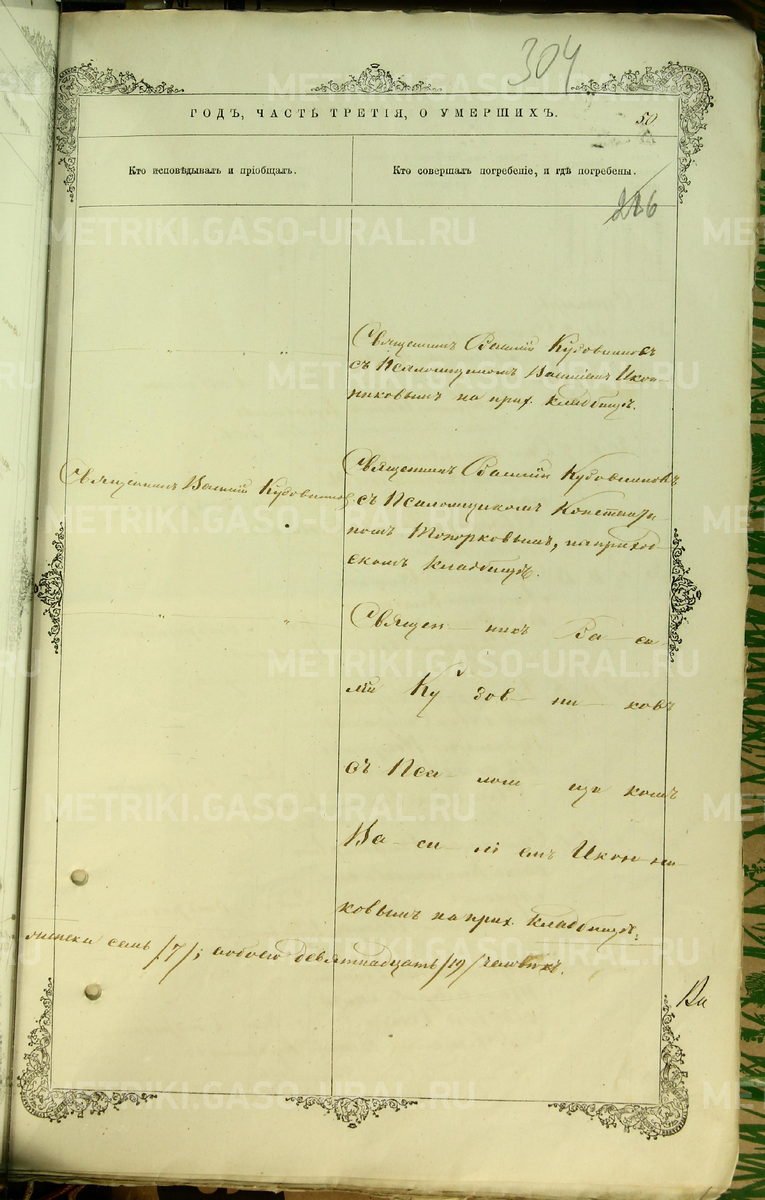 304
ГОДЪ, ЧАСТЬ ТРЕТІЯ, О УМЕРШИХЪ.
50
Кто исповѣдывалъ и пріобщалъ.
Кто совершалъ погребеніе, и гдѣ погребены.
226
Священникъ Василій Кузовниковъ
съ Псаломщикомъ Василіемъ Икон-
никовымъ на прих. кладбищѣ.
Священникъ Василій Кузовниковъ
Священникъ Василій Кузовниковъ
съ Псаломщикомъ Константи
номъ Топорковымъ, на приход-
скомъ кладбищѣ.
Священ- никъ Ва си
лій Ку зов- ни- ковъ
съ Пса- лом- щи комъ
Ва- си- лі емъ Икон ни-
ковымъ на прих. кладбищѣ.
женска семь /7/; обоего девятнадцать /19/ человѣкъ.
Ва
METRIKI.GASO-URAL.RU